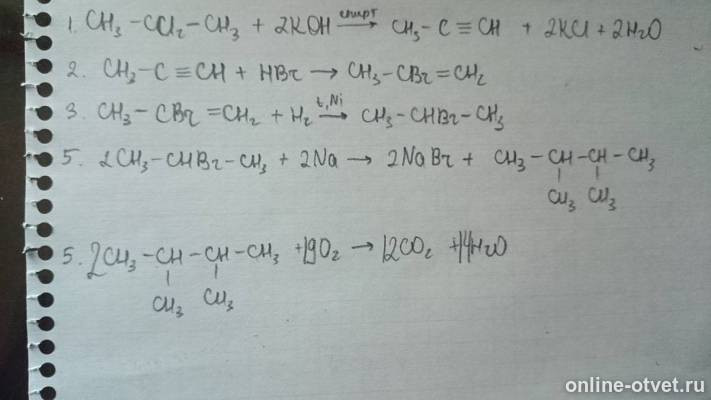 1. CH₃ – CCl₂ – CH₃ + 2KOH –спирт→ CH₃ – C ≡ CH + 2KCl + 2H₂O
2. CH₃ – C ≡ CH + HBr → CH₃ – CBr = CH₂
3. CH₃ – CBr = CH₂ + H₂ –t, Ni→ CH₃ – CHBr – CH₃
5. 2CH₃ – CHBr – CH₃ + 2Na → 2NaBr + CH₃ – CH – CH – CH₃
CH₃ CH₃
5. 2CH₃ – CH – CH – CH₃ + 19O₂ → 12CO₂ + 14H₂O
CH₃ CH₃
online-otvet.ru